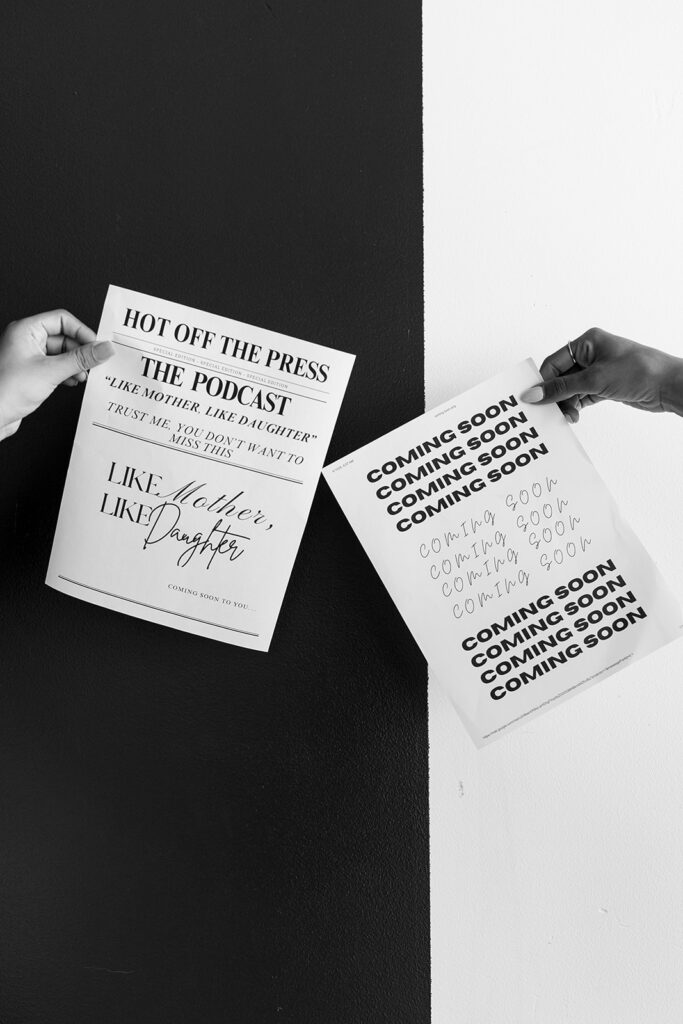 HOT OFF THE PRESS
SPECIAL EDITION - SPECIAL EDITION - SPECIAL EDITION
THE PODCAST
"LIKE MOTHER, LIKE DAUGHTER"
TRUST ME, YOU DON'T WANT TO
MISS THIS
LIKE Mother,
LIKE Daughter
COMING SOON TO YOU...
COMING SOON
COMING SOON
COMING SOON
COMING SOON
COMING SOON
COMING SOON
COMING SOON
COMING SOON
COMING SOON
COMING SOON
COMING SOON
COMING SOON